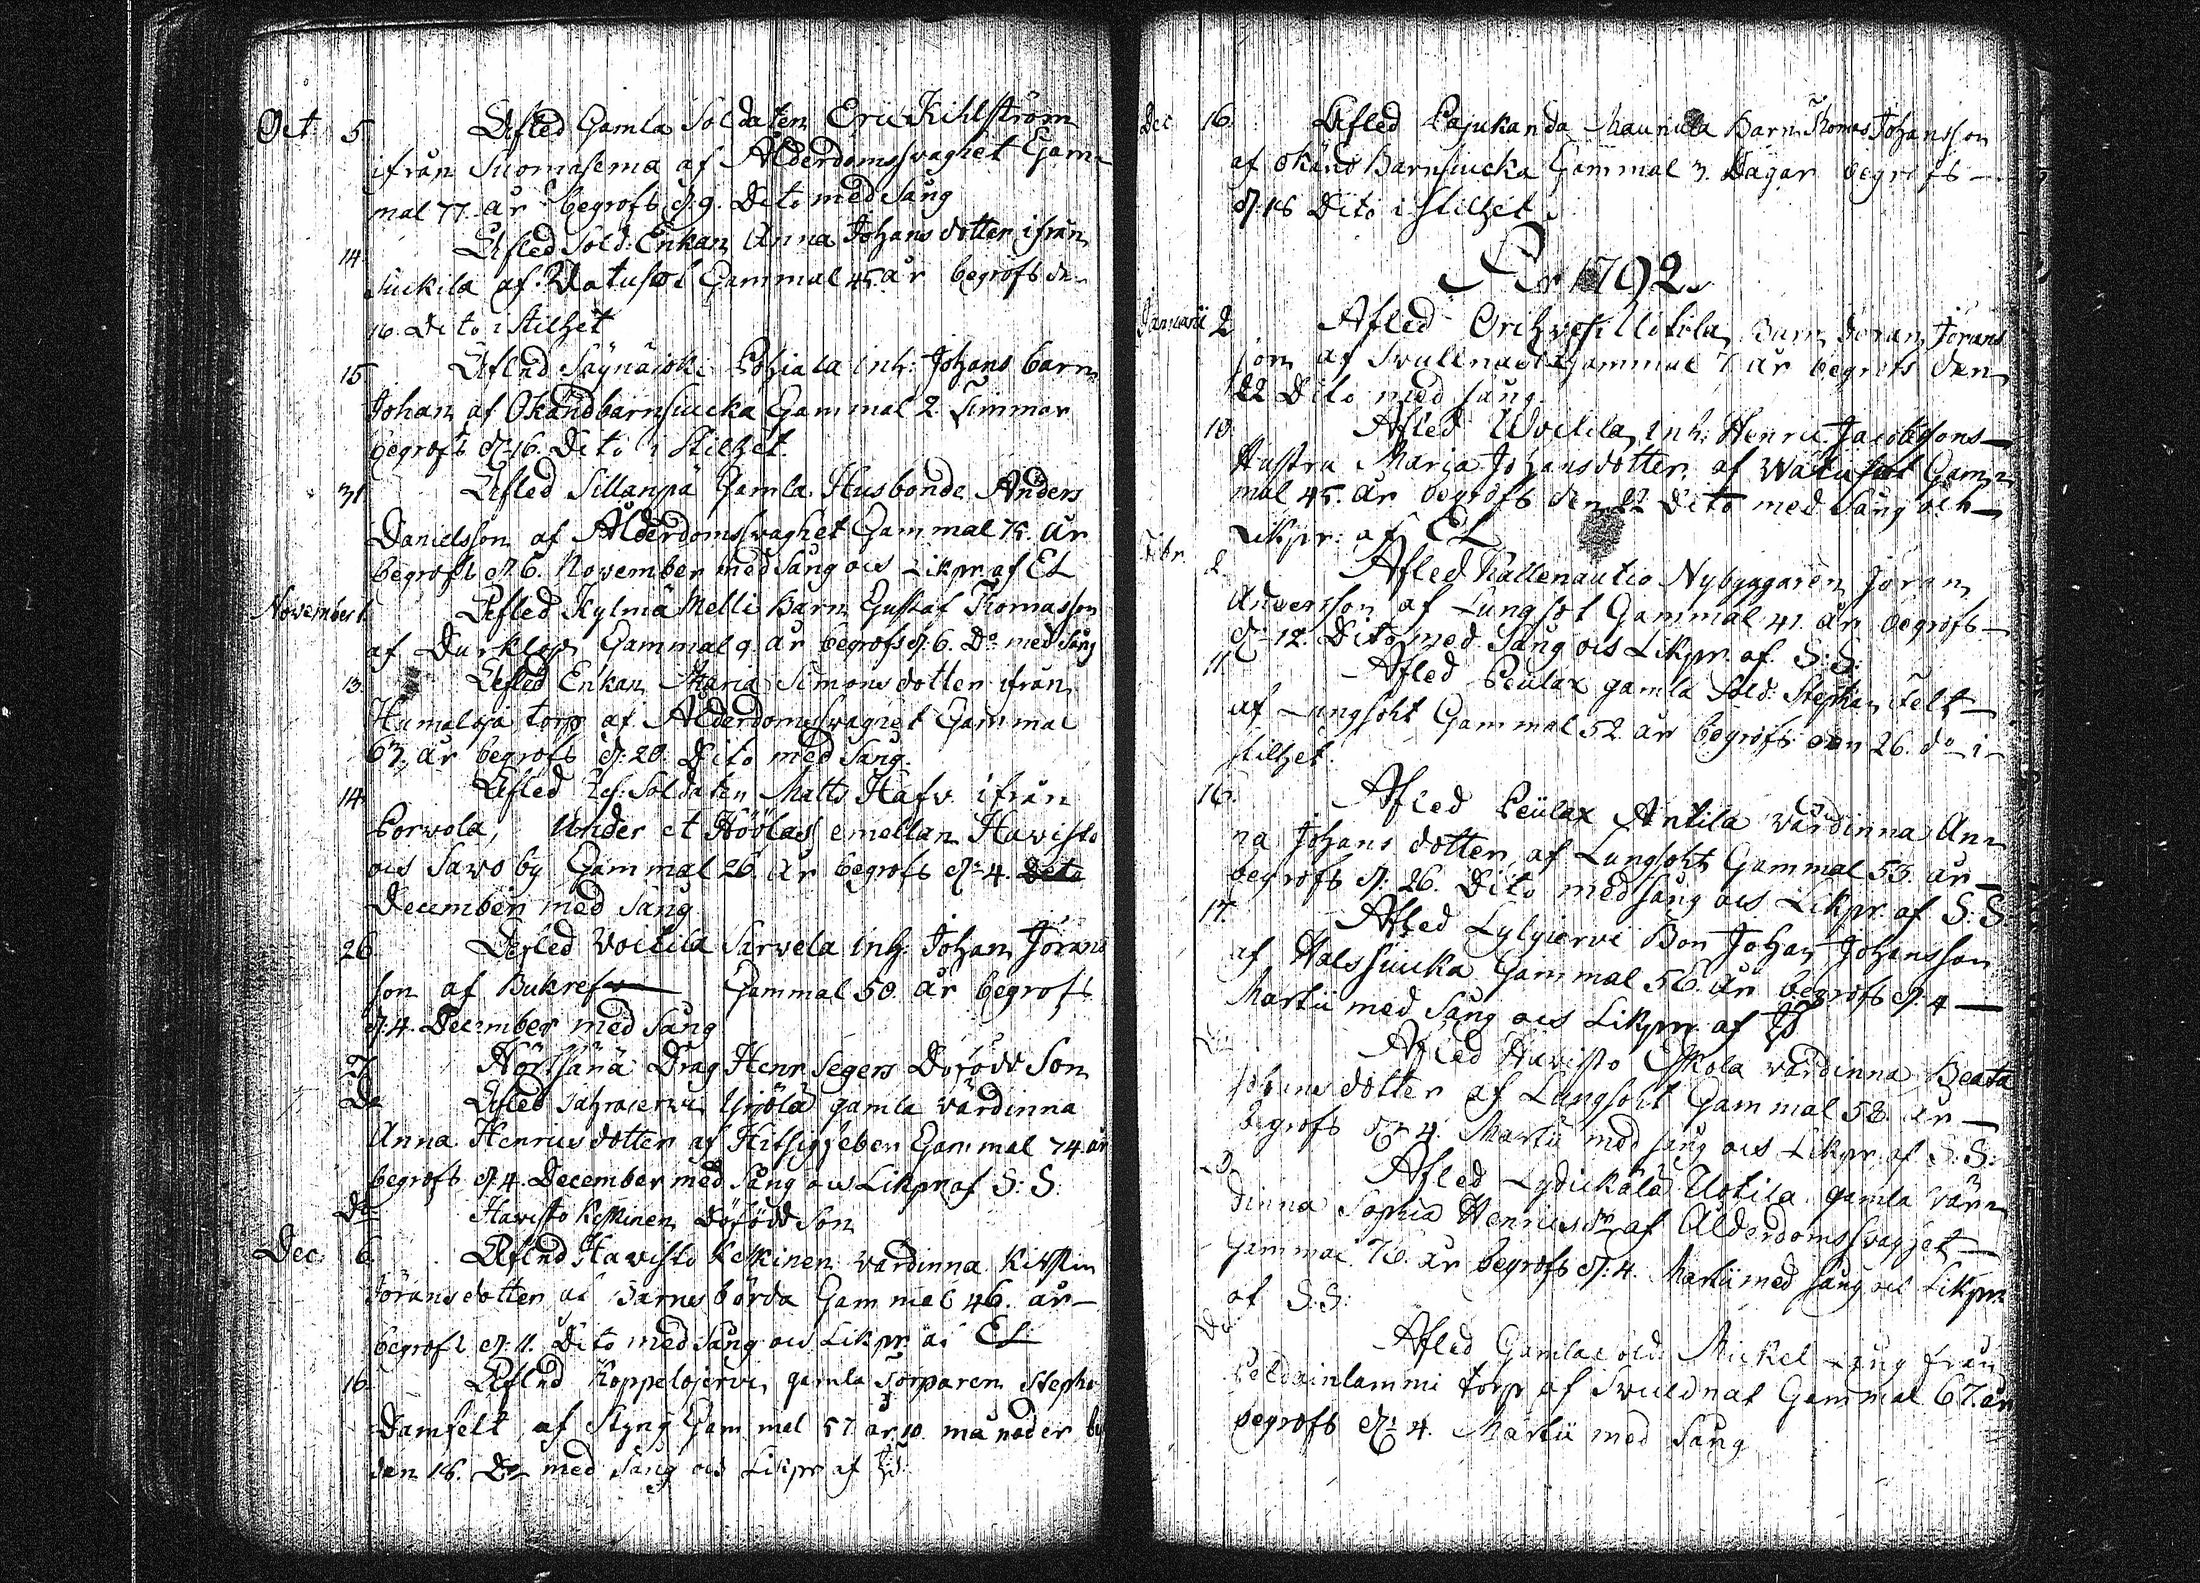 Oct: 5. Afled Gamla Soldaten Eric Kihlström
ifrån Suomasema af Ålderdomssvaghet Gam-
mal 77. år begrofs d: 9. Dito med Sång
14. Afled Sold: Enkan Anna Johans dotter ifrån
Suckila af Watusot Gammal 45 år begrofs dn
16. Dito i Stilhet
15. Afled Säynäjoki Pohiala inh: Johans barn
Johan af Okändbarnsiucka Gammal 2 Timmar
begrofs d: 16. Dito i Stilhet.
31 Afled Sillanpä Gamla Husbonde Anders
Danielsson af Ålderdomssvaghet Gammal 75. år
begrofs d: 6. November med Sång och Likpr. af EL
November 1. Afled Kylmä Melli Barn Gustaf Thomasson
af Durklop Gammal 9. år begrofs d: 6. Do med Sång
13. Afled Enkan Maria Simons dotter ifrån
Humaloja torp af Ålderdomssvaghet Gammal
63. år begrofs d: 20. Dito med Sång.
14. Afled Soldaten Matts Hafv. ifrån
Porwola, Under et Hölass emellan Hawisto
och Sawo by Gammal 26. år begrofs d: 4. Dito
December med Sång
26 Afled Woitila Sirvela inh: Johan Jörans
son af Bukref Gammal 50. år begrofs
d: 4. December med Sång
27 Drag Henr Segers Dödfödd Son
Do Afled Yrjölä gamla värdinna
Anna Henricsdotter af Hitsigfeber Gammal 74. år
begrofs d: 4. December med Sång och Likpr af S: S:
Do Hawisto Keskinen Dödfödd Son
Dec: 6 Afled Hawisto Keskinen värdinna Kirstin
Jöransdotter af Barnsbörda Gammal 46. år
begrofs d: 11. Dito med Sång och Likpr. af EL
16. Afled Koppelojervi gamla Torparen Steph:
Damfelt af Styng Gammal 57. år 10. månader
den 18. Do med Sång och Likpr af
Dec. 16. Afled Pajukanda Maunula Barn Thomas Johansson
af okänd Barnsiucka Gammal 3. Dagar begrofs
d: 18 Dito i Stilhet
År 1792.
Januarii 2 Afled Orihvesi Uotila Barn Jöran Jörans
son af Svullnad Gammal 7 år begrofs den
22 Dito med sång.
10. Afled Woitila Inh: Henric Jacobssons
Hustru Maria Johansdotter af Watusot Gam
mal 45. år begrofs den 22 Dito med Sång och
Likpr: af EL
Febr. 2 Afled Kallenautio Nybyggaren Jöran
Andersson af Lungsot Gammal 41. år begrofs
d: 12. Dito med Sång och Likpr. af S: S:
11. Afled Peulax gamla Sold: Stephan Felt
af Lungsoht Gammal 52. år begrofs den 26. do i
stilhet.
16. Afled Peulax Antila värdinna An
na Johans dotter af Lungsoht Gammal 53. år
begrofs d: 26. Dito med sång och Likpr. af S: S:
17. Afled Lylyiervi Bon Johan Johansson
af Halssiucka Gammal 56. år begrofs d: 4
Martii med Sång och Likpr. af
Afled Hawisto Eskola värdinna Beata
Johans dotter af Lungsoht Gammal 58. år
begrofs d: 4. Martii med sång och Likpr. af S: S:
Afled Lydickälä Uotila gamla Vär
dinna Sophia Henricsdr af Ålderdomssvaghet
Gammal 76. år begrofs d: 4. Martii med sång och Likpr:
af S: S:
Do Afled Gamla Sold: Mickel Lång från
Peldoinlammi torp af Svulnat Gammal 67. år
begrofs d: 4. Martii med Sång